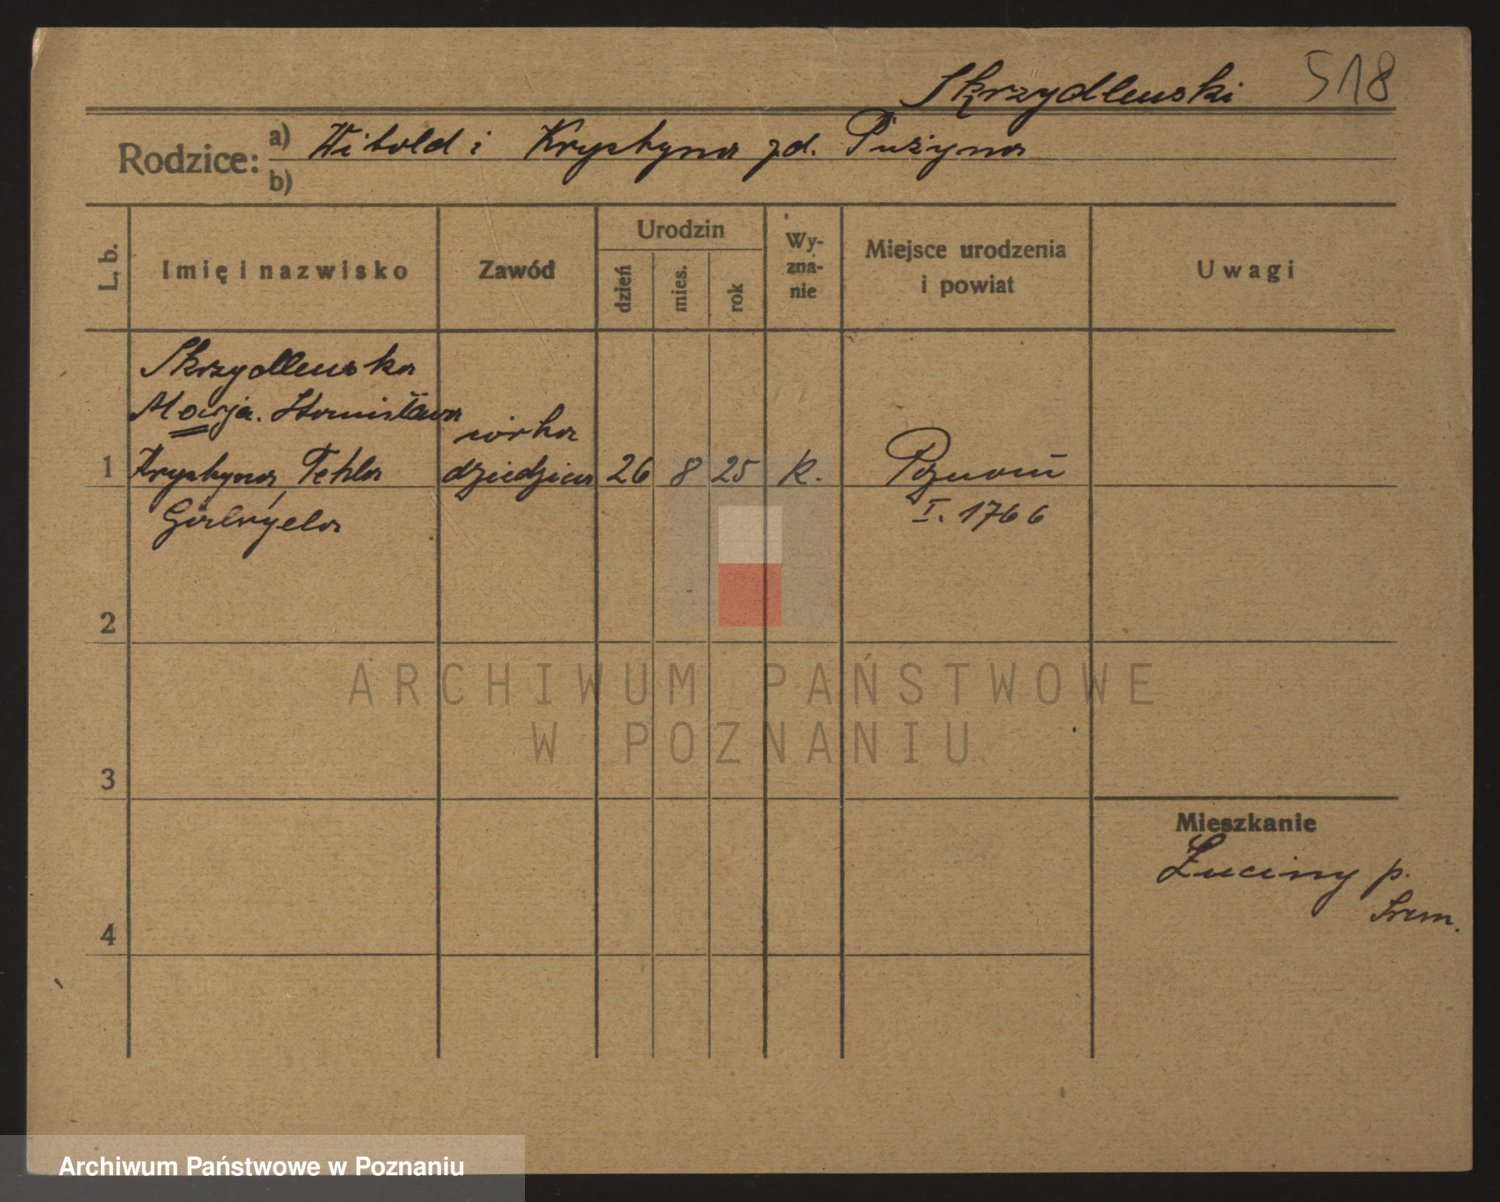 Skrzydlewski 518
Rodzice: a) Witold i Krystyna zd. Pużyna
b)
L. b.
Imię i nazwisko
Zawód
Urodzin
dzień
mies.
rok
Wy-
zna-
nie
Miejsce urodzenia
i powiat
Uwagi
Skrzydlewska
Marja. Stanisława
1 Krystyna, Tekla
Gabryela
córka
dziedzica
26 8 25 k.
Poznań
I. 1766
2
3
4
Mieszkanie
Łuciny p.
Śrem.
ARCHIWUM PAŃSTWOWE
W POZNANIU
Archiwum Państwowe w Poznaniu